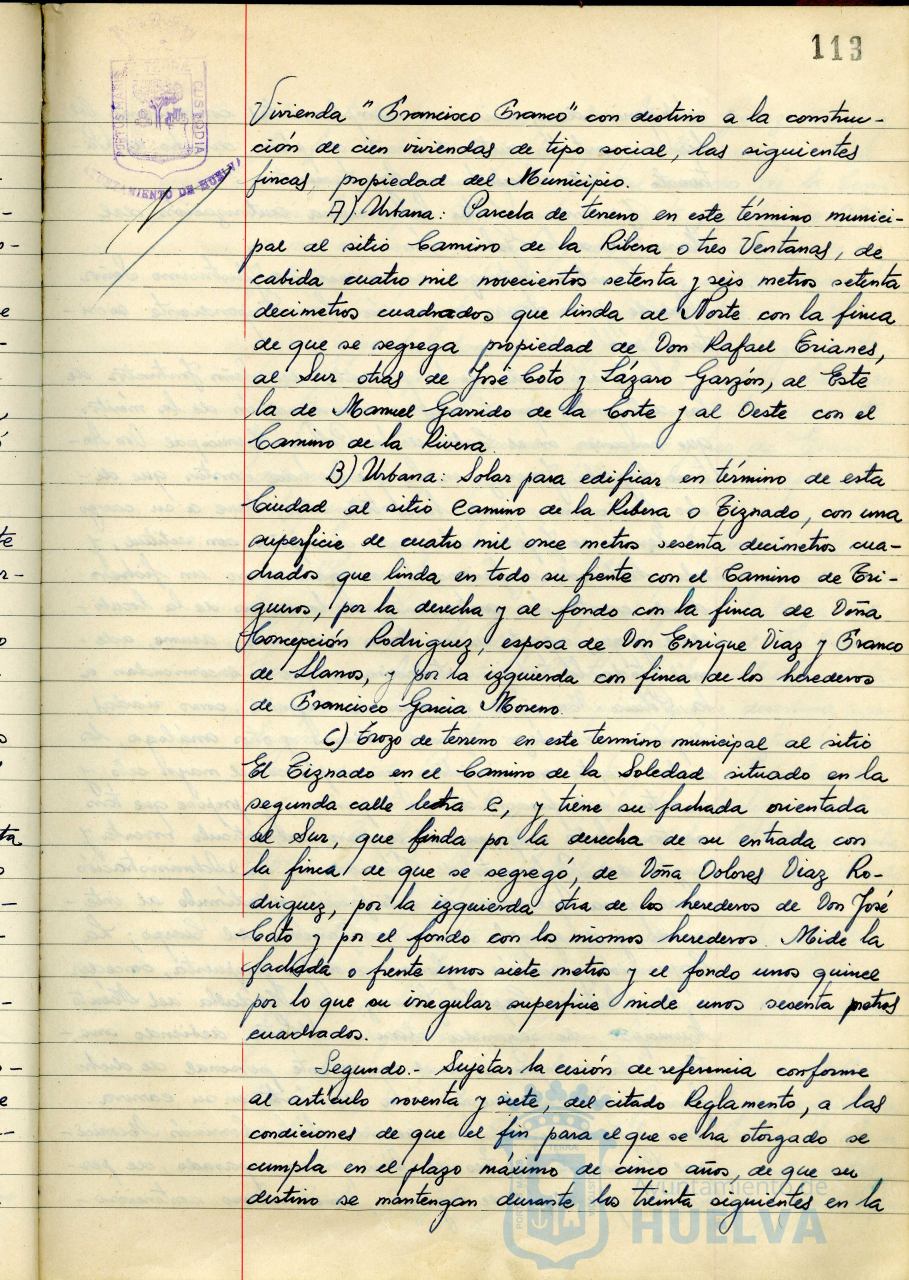 113
PORTUS MARIS ET TERRAE CUSTODIA
AYUNTAMIENTO DE HUELVA
Vivienda "Francisco Franco" con destino a la construc-
ción de cien viviendas de tipo social, las siguientes
fincas, propiedad del Municipio.
A) Urbana: Parcela de terreno en este término munici-
pal al sitio Camino de la Ribera o tres Ventanas, de
cabida cuatro mil novecientos setenta y seis metros setenta
decimetros cuadrados que linda al Norte con la finca
de que se segrega propiedad de Don Rafael Trianes,
al Sur otras de José Coto y Lázaro Garzón, al Este
la de Manuel Garrido de la Corte y al Oeste con el
Camino de la Rivera.
B) Urbana: Solar para edificar en término de esta
Ciudad al sitio Camino de la Ribera o Tiznado, con una
superficie de cuatro mil once metros sesenta decimetros cua-
drados que linda en todo su frente con el Camino de Tri-
gueros, por la derecha y al fondo con la finca de Doña
Concepción Rodriguez, esposa de Don Enrique Diaz y Franco
de Llanos, y por la izquierda con finca de los herederos
de Francisco Garcia Moreno.
C) Trozo de terreno en este termino municipal al sitio
El Tiznado en el Camino de la Soledad situado en la
segunda calle letra C, y tiene su fachada orientada
al Sur, que linda por la derecha de su entrada con
la finca de que se segregó, de Doña Dolores Diaz Ro-
driguez, por la izquierda otra de los herederos de Don José
Coto y por el fondo con los mismos herederos. Mide la
fachada o frente unos siete metros y el fondo unos quince
por lo que su irregular superficie mide unos sesenta metros
cuadrados.
Segundo.- Sujetar la cesión de referencia conforme
al articulo noventa y siete, del citado Reglamento, a las
condiciones de que el fin para el que se ha otorgado se
cumpla en el plazo máximo de cinco años, de que su
destino se mantengan durante los treinta siguientes en la
Ayuntamiento de
HUELVA